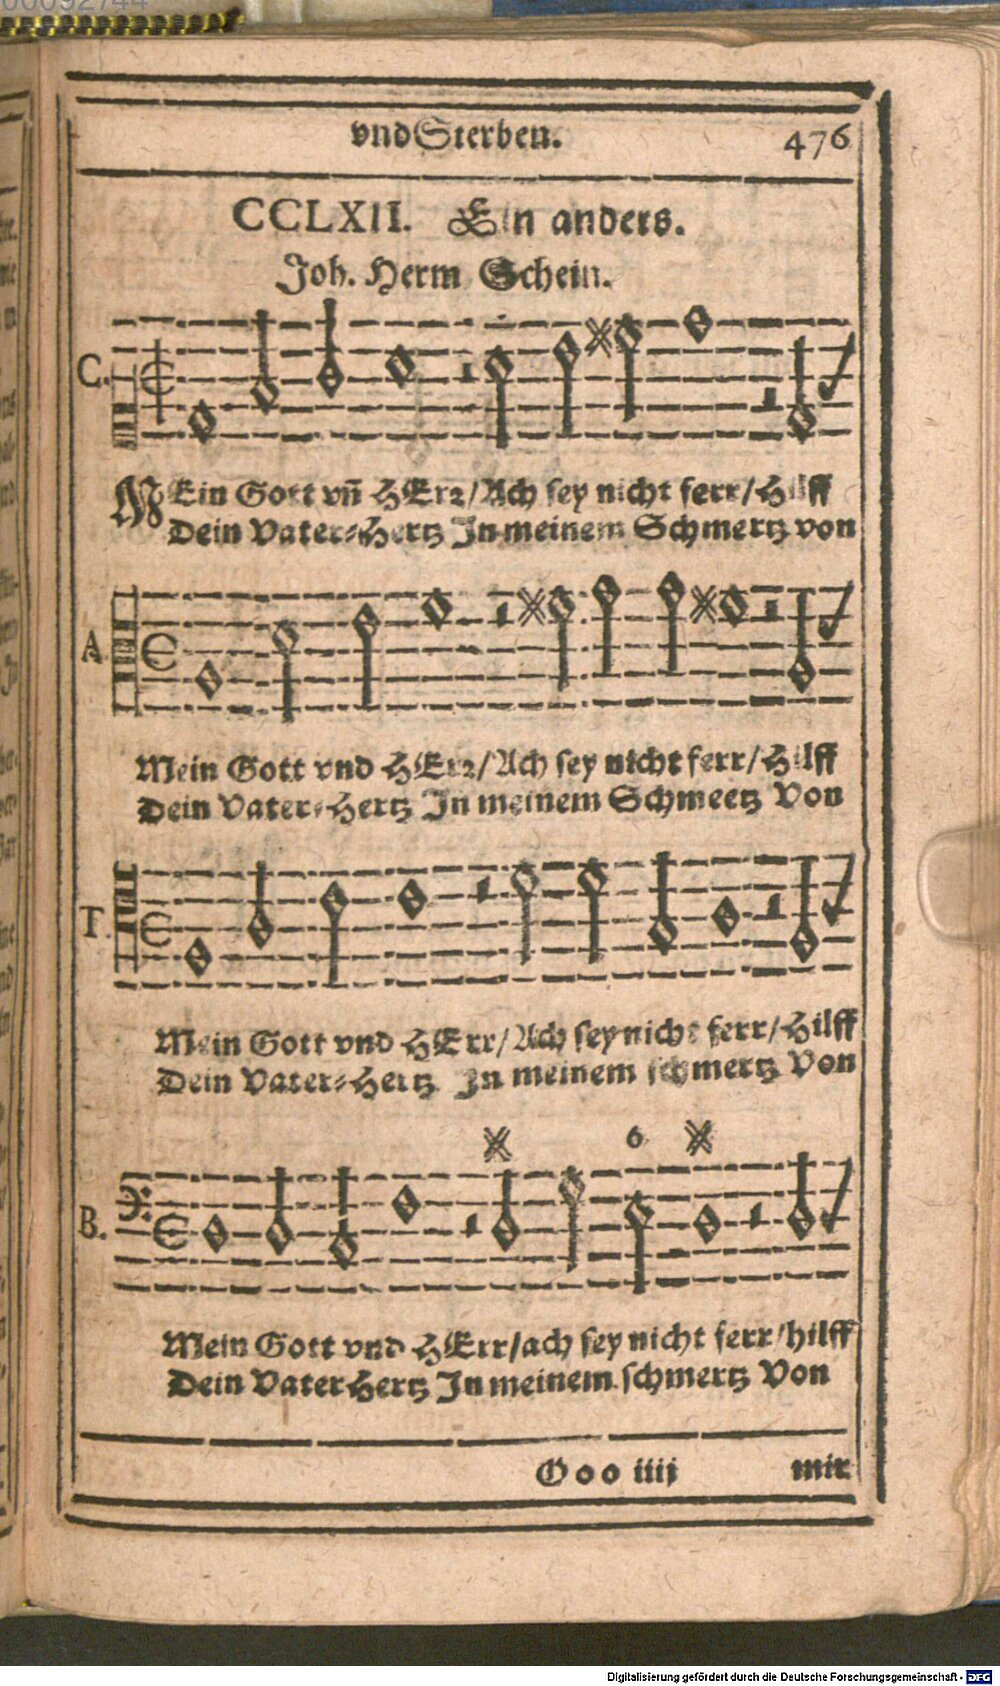 00092744
vnd Sterben.
476
CCLXII. Ein anders.
Joh. Herm Schein.
C.
MEin Gott vn̄ HErr/Ach sey nicht ferr/Hilff
Dein Vater-Hertz In meinem Schmertz von
A
Mein Gott vnd HErr/Ach sey nicht ferr/Hilff
Dein Vater-Hertz In meinem Schmeetz Von
T.
Mein Gott vnd HErr/Ach sey nicht ferr/Hilff
Dein Vater-Hertz In meinem schmertz Von
6
B.
Mein Gott vnd HErr/ach sey nicht ferr/hilff
Dein Vater Hertz In meinem schmertz Von
Ooo iiij
mir
Digitalisierung gefördert durch die Deutsche Forschungsgemeinschaft - DFG